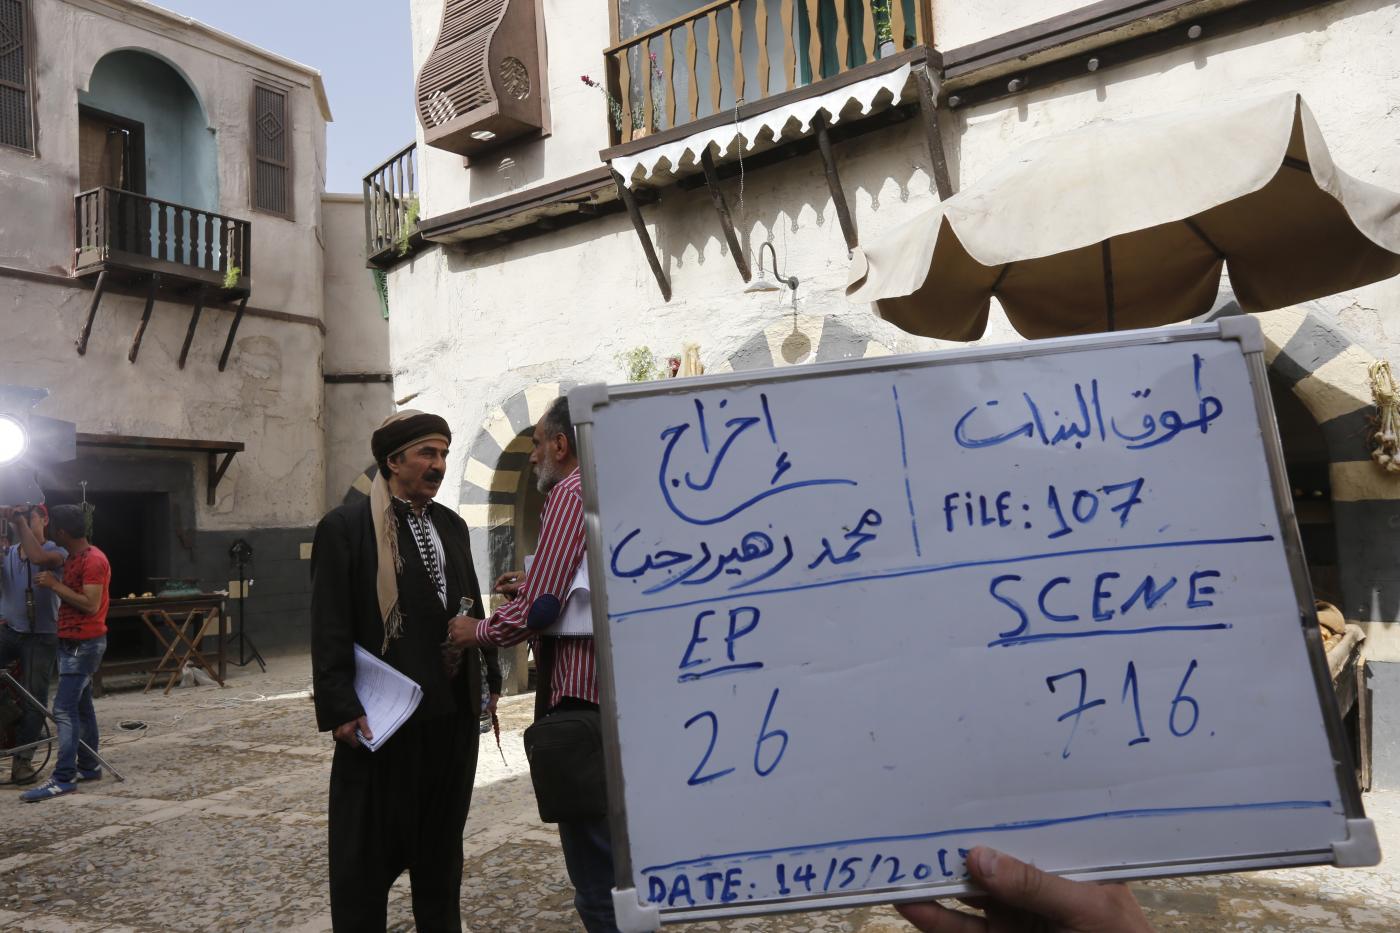 طوق البنات
FILE: 107
إخراج
محمد زهير رجب
SCENE
716
EP
26
DATE: 14/5/201